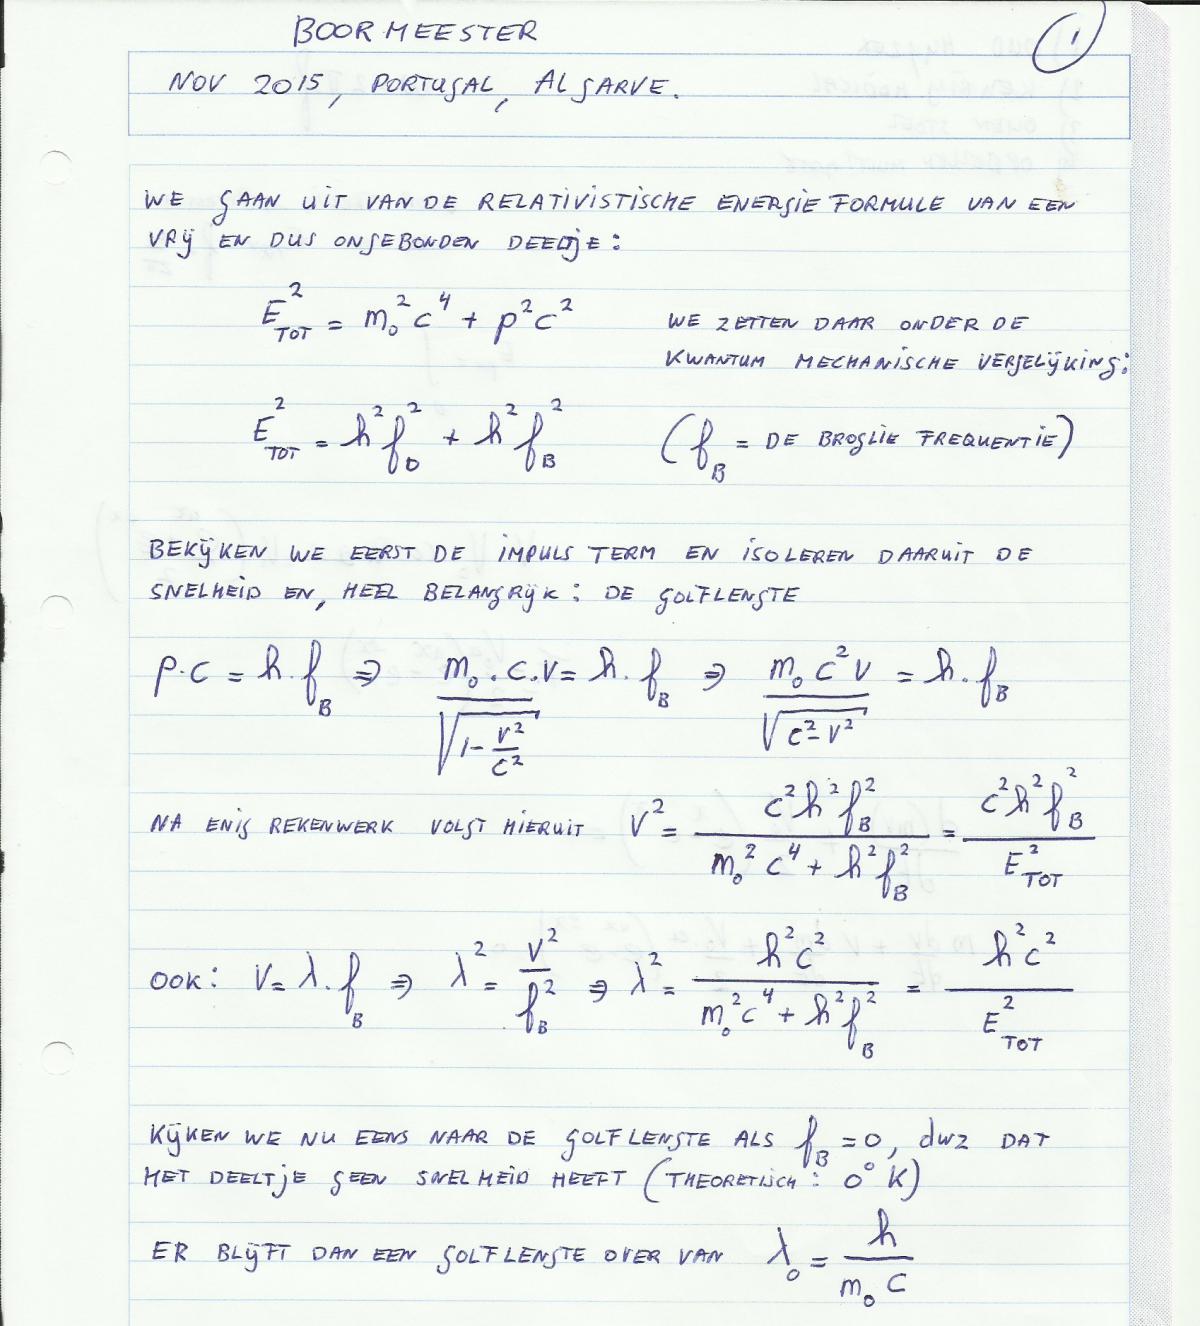 BOORMEESTER
1
NOV 2015, PORTUGAL, ALGARVE.
WE GAAN UIT VAN DE RELATIVISTISCHE ENERGIE FORMULE VAN EEN
VRIJ EN DUS ONGEBONDEN DEELTJE:
E²_TOT = m₀²c⁴ + p²c² WE ZETTEN DAAR ONDER DE
KWANTUM MECHANISCHE VERGELIJKING:
E²_TOT = h²f₀² + h²f_B² (f_B = DE BROGLIE FREQUENTIE)
BEKIJKEN WE EERST DE IMPULS TERM EN ISOLEREN DAARUIT DE
SNELHEID EN, HEEL BELANGRIJK: DE GOLFLENGTE
p·c = h·f_B ⇒ m₀·c·v / √(1 - v²/c²) = h·f_B ⇒ m₀c²v / √(c² - v²) = h·f_B
NA ENIG REKENWERK VOLGT HIERUIT V² = c²h²f_B² / (m₀²c⁴ + h²f_B²) = c²h²f_B² / E²_TOT
OOK: V = λ·f_B ⇒ λ² = V²/f_B² ⇒ λ² = h²c² / (m₀²c⁴ + h²f_B²) = h²c² / E²_TOT
KIJKEN WE NU EENS NAAR DE GOLFLENGTE ALS f_B = 0, dwz DAT
HET DEELTJE GEEN SNELHEID HEEFT (THEORETISCH: 0°K)
ER BLIJFT DAN EEN GOLFLENGTE OVER VAN λ₀ = h / m₀c